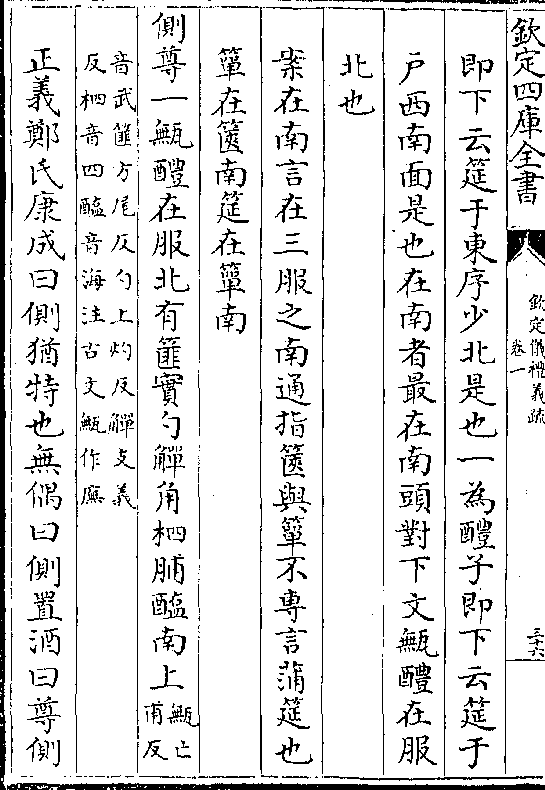 欽定四庫全書
欽定儀禮義疏
卷一
三十六
即下云筵于東序少北是也一為醴子即下云筵于
戶西南面是也在南者最在南頭對下文甒醴在服
北也
案在南言在三服之南通指篋與簞不專言蒲筵也
簞在篋南筵在簞南
側尊一甒醴在服北有篚實勺觶角柶脯醢南上
甒亡
甫反
音武篚方尾反勺上灼反觶支義
反柶音四醢音海注古文甒作廡
正義鄭氏康成曰側猶特也無偶曰側置酒曰尊側